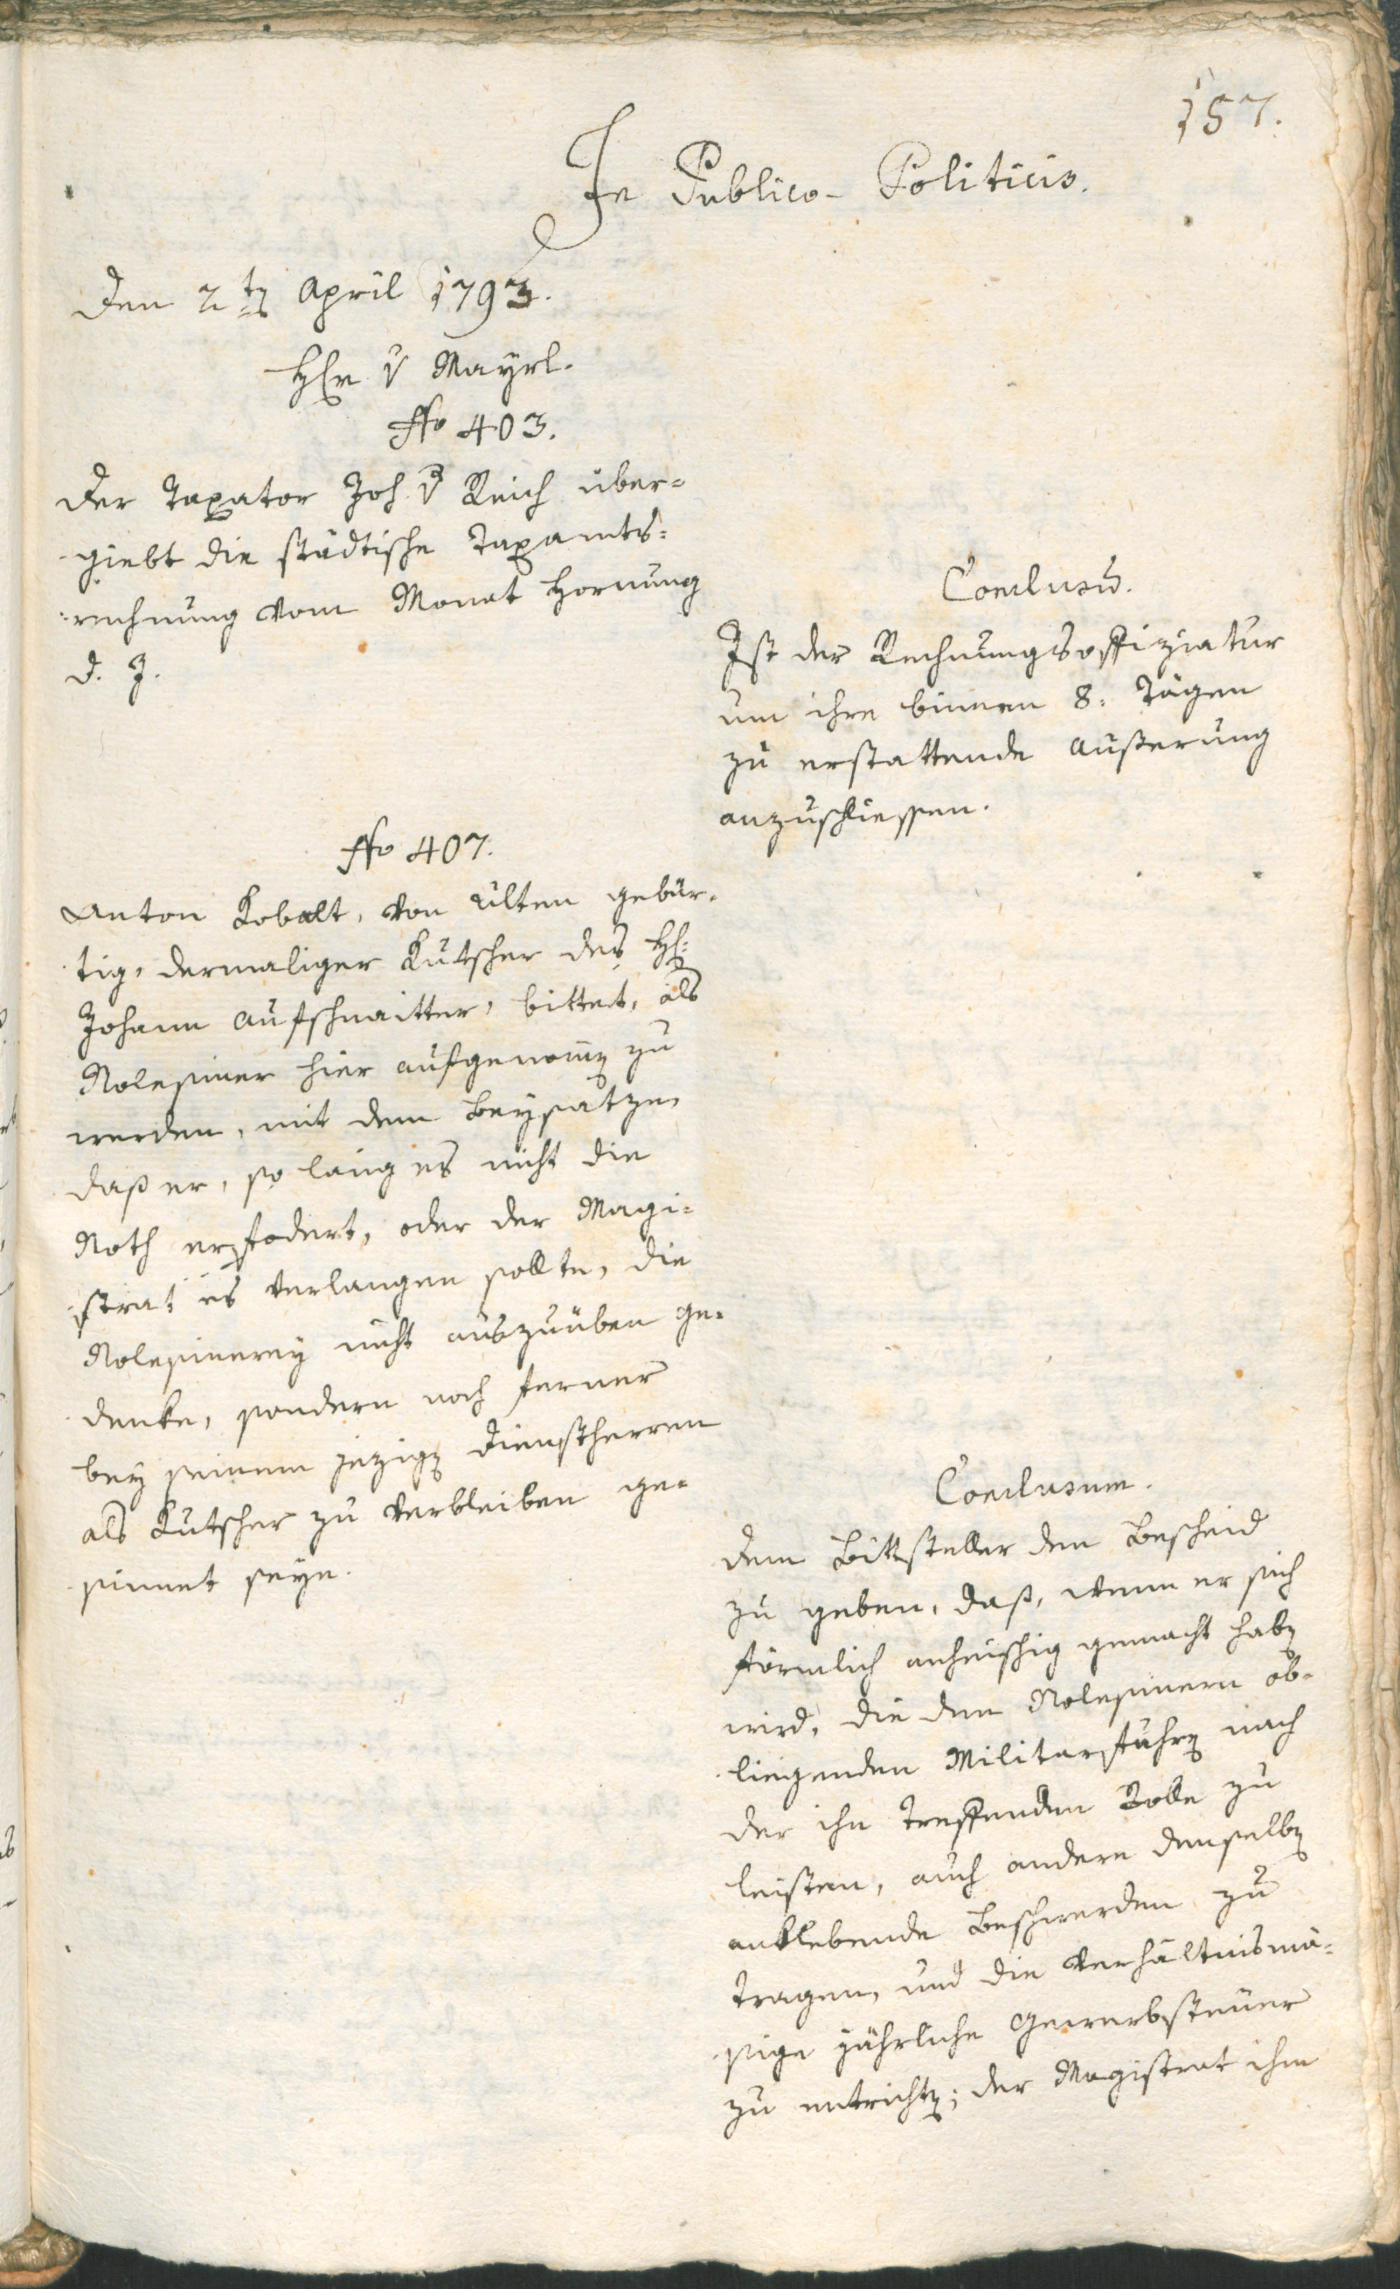 157.
In Publico-Politicis.
Den 2ten April 1793.
Hℓr v Mayrl.
No 403.
Der Taxator Joh. v Reich über-
giebt die städtische Taxamts-
rechnung vom Monat Hornung
d. J.
Conclusū.
Ist der Rechnungsoffiziatur
um ihre binnen 8. Tägen
zu erstattende Äußerung
anzuschliessen.
No 407.
Anton Kobalt, von Ulten gebür-
tig, dermaliger Kutscher des H:
Johann Aufschnaitter, bittet, als
Rolesiner hier aufgenomen zu
werden, mit dem Beysatze,
daß er, so lang es nicht die
Noth erfodert, oder der Magi-
strat es verlangen sollte, die
Rolesinerey nicht auszuüben ge-
denke, sondern noch ferner
bey seinem jezigen Dienstherren
als Kutscher zu verbleiben ge-
sinnet seye.
Conclusum.
Dem Bittsteller den Bescheid
zu geben, daß, wenn er sich
förmlich anheischig gemacht haben
wird, die den Rolesinern ob-
liegenden Militarfuhren nach
der ihn treffenden Rolle zu
leisten, auch andere denselben
anklebende Beschwerden zu
tragen, und die verhältnismä-
sige jährliche Gewerbsteuer
zu entrichten; der Magistrat ihm